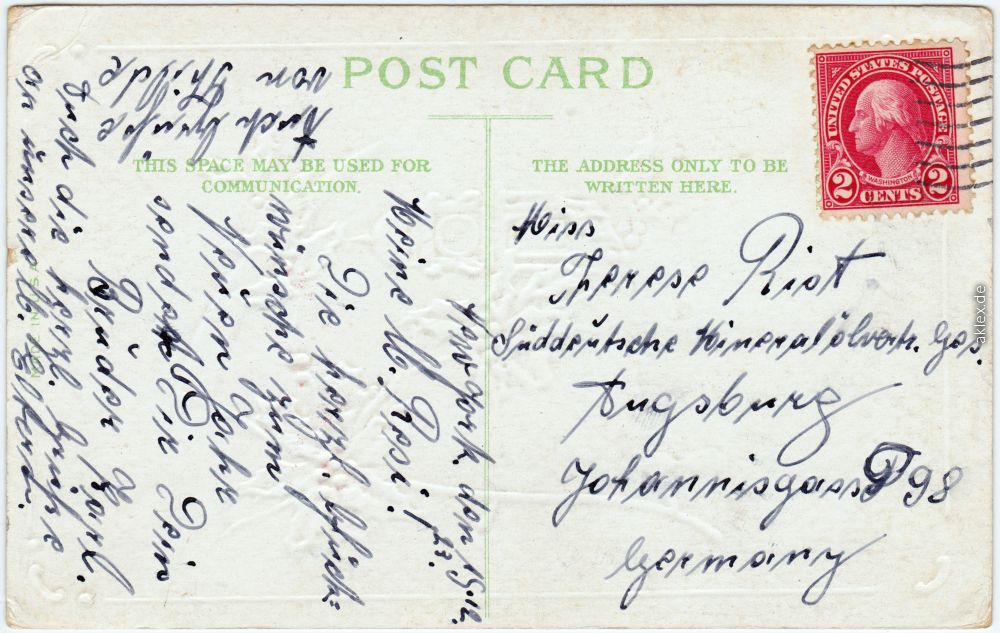 POST CARD
THIS SPACE MAY BE USED FOR
COMMUNICATION.
THE ADDRESS ONLY TO BE
WRITTEN HERE.
UNITED STATES POSTAGE
WASHINGTON
2 CENTS 2
Miss
Therese Riot
Süddeutsche Mineralölverk. Ges.
Augsburg
Johannisgasse 98
Germany
New York. den 15.12.
23.
Meine lb. Resi!
Die herzl. Glück=
wünsche zum
Neuen Jahr
sendet Dir Dein
Bruder Karl.
Auch die herzl. Grüße
an unsere lb.
Auch Grüße
von Thilde
aklex.de